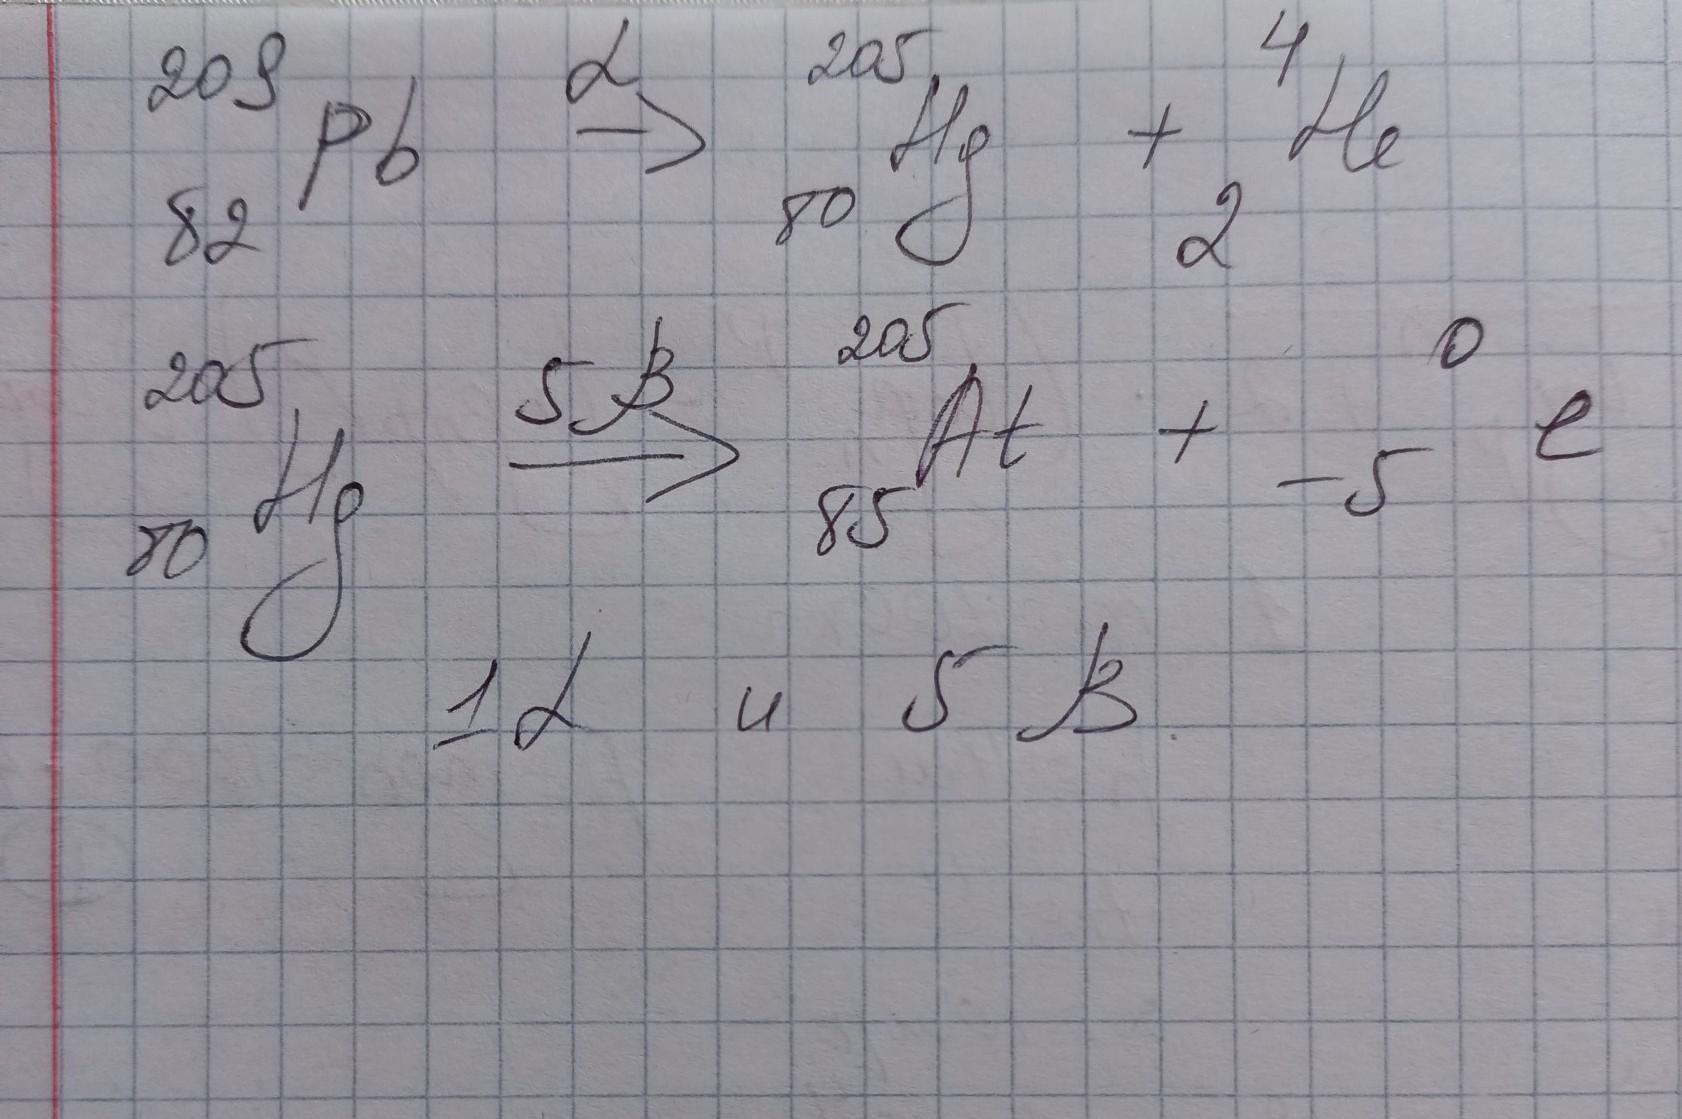 ²⁰⁹₈₂Pb α→ ²⁰⁵₈₀Hg + ⁴₂He
²⁰⁵₈₀Hg 5β→ ²⁰⁵₈₅At + ⁰₋₅e
1α и 5β.